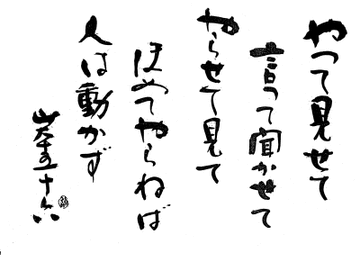 やって見せて
言って聞かせて
やらせて見て
ほめてやらねば
人は動かず
山本五十六